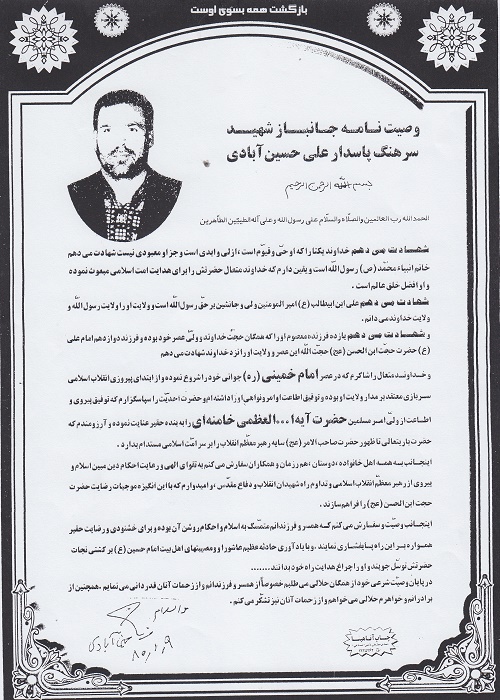 بازگشت همه بسوی اوست
وصیت نامه جانباز شهید
سرهنگ پاسدار علی حسین آبادی
بسم الله الرحمن الرحیم
الحمدالله رب العالمین والصلاه والسلام علی رسول الله وعلی آله الطیبین الطاهرین
شهادت می دهم خداوند یکتا را که او حی و قیوم است ، ازلی وابدی است و جز او معبودی نیست شهادت می دهم
خاتم انبیاء محمد (ص) رسول الله است و یقین دارم که خداوند متعال حضرتش را برای هدایت امت اسلامی مبعوث نموده
و او افضل خلق عالم است .
شهادت می دهم علی ابن ابیطالب (ع) امیرالمومنین ولی و جانشین برحق رسول الله است و ولایت او را ولایت رسول الله و
ولایت خداوند می دانم .
و شهادت می دهم یازده فرزند معصوم او را که همگان حجت خداوند و ولی عصر خود بوده و فرزند دوازدهم امام علی
(ع) حضرت حجت ابن الحسن (عج) حجت الله این عصر و ولایت او را نزد خداوند شهادت می دهم
و خداوند متعال را شاکرم که در عصر امام خمینی (ره) جوانی خود را شروع نموده و از ابتدای پیروزی انقلاب اسلامی
سربازی معتقد بر مدار ولایت او بوده و توفیق اطاعت اوامر و نواهی او را داشته ام و حضرت احدیت را سپاسگزارم که توفیق پیروی و
اطاعت از ولی امر مسلمین حضرت آیه ا...العظمی خامنه ای را به بنده حقیر عنایت نموده و آرزومندم که
حضرت باریتعالی تا ظهور حضرت صاحب الامر (عج) سایه رهبر معظم انقلاب را بر سر امت اسلامی مستدام بدارد .
اینجانب به همه اهل خانواده ، دوستان ، هم رزمان و همکاران سفارش می کنم به تقوای الهی و رعایت احکام دین مبین اسلام و
پیروی از رهبر معظم انقلاب اسلامی و تداوم راه شهیدان انقلاب و دفاع مقدس ، و امیدوارم که با این انگیزه موجبات رضایت حضرت
حجت ابن الحسن (عج) را فراهم سازند .
اینجانب وصیت و سفارش می کنم که همسر و فرزندانم متمسک به اسلام و احکام روشن آن بوده و برای خشنودی و رضایت حقیر
همواره بر این راه پافشاری نمایند . و با یادآوری حادثه عظیم عاشورا و مصیبتهای اهل بیت امام حسین (ع) بر کشتی نجات
حضرتش توسل جویند و او را چراغ هدایت راه خود بدانند........
در پایان وصیت شرعی خود از همگان حلالی می طلبم خصوصاً از همسر و فرزندانم و از زحمات آنان قدردانی می نمایم . همچنین از
برادرانم و خواهرم حلالی می خواهم و از زحمات آنان نیز تشکر می کنم .
والسلام
حسین آبادی
۸۰/۱/۹
چاپ آناهیتا